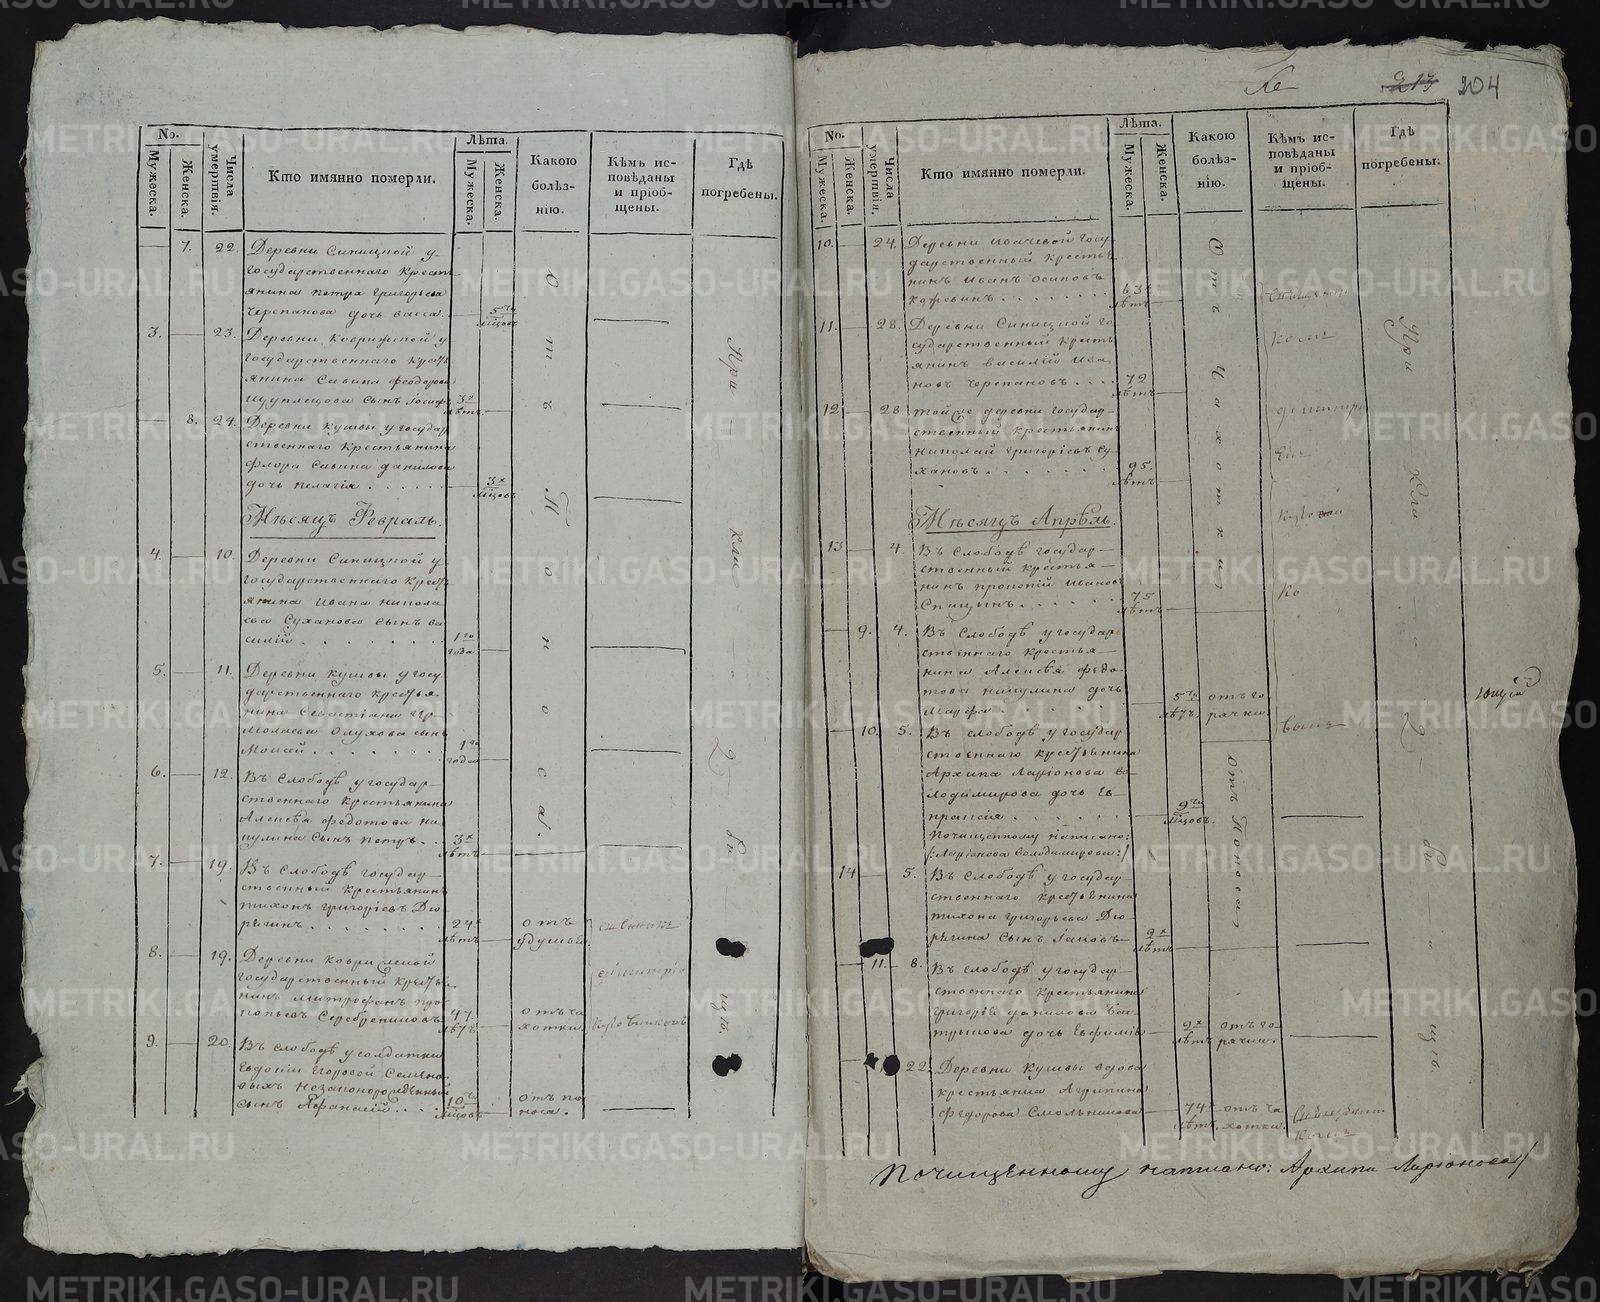 No.
Мужеска.
Женска.
Числа умертвія.
Кто имянно померли.
Лѣта.
Мужеска.
Женска.
Какою
болѣз-
нію.
Кѣмъ ис-
повѣданы
и пріоб-
щены.
Гдѣ
погребены.
7. 22. Деревни Синицной у
государственнаго кресть
янина Петра Григорьева
Черепанова дочь Васса. 5
мцовъ
3. 23. Деревни
государственнаго
янина Савина Феодорова
сынъ 3х
лѣтъ.
8. 24. Деревни Кушвы у государ
ственнаго крестьянина
Флора Савина Данилова
дочь Пелагія 3х
мцовъ
Отъ Поноса.
Мѣсяцъ Февраль.
4. 10. Деревни Синицной у
государственнаго
янина Ивана Никола
ева Суханова сынъ Ва
силій 1го
года.
5. 11. Деревни Кушвы у госу
дарственнаго крестья
нина Севастіана Ер
молаева сынъ
Моисей 1го
года
6. 12. Въ слободѣ у государ
ственнаго крестьянина
Алексѣя Федотова Ни
кулина сынъ Петръ. 3х
лѣтъ
7. 19. Въ слободѣ государ
ственный крестьянинъ
Тихонъ Григорьевъ Дю
рягинъ 24х
лѣтъ
отъ
удушья.
8. 19. Деревни
государственный
нинъ Митрофанъ Про
копьевъ Серебрениковъ 47.
лѣтъ
отъ ча
хотки.
9. 20. Въ слободѣ у солдатки
Евдокіи Егоровой Семено
выхъ незаконорожденный
сынъ Афанасій 10ти
мцовъ
отъ по
носа.
При кла
д би
щѣ.
213 204
No.
Мужеска.
Женска.
Числа умертвія.
Кто имянно померли.
Лѣта.
Мужеска.
Женска.
Какою
болѣз-
нію.
Кѣмъ ис-
повѣданы
и пріоб-
щены.
Гдѣ
погребены.
10. 24. Деревни госу
дарственный кресть
нинъ Иванъ Осиповъ
63х
лѣтъ
11. 28. Деревни Синицной го
сударственный кресть
янинъ Василій Ива
новъ Черепановъ 72
лѣтъ
12 28 той же деревни государ
ственный крестьянинъ
Николай Григорьевъ Су
хановъ 95.
лѣтъ
Отъ Чахотки
Мѣсяцъ Апрѣль.
13 4. Въ слободѣ государ
ственный крестья
нинъ Прокопій Ивановъ
Спицынъ 75
лѣтъ
9. 4. Въ слободѣ у государ
ственнаго крестья
нина Алексѣя Федо
това Никулина дочь
Марфа 5ти
лѣтъ.
отъ го
рячки.
10. 5. Въ слободѣ у государ
ственнаго крестьянина
Архипа Ларіонова Во
лодимирова дочь Ев
праксія 9ти
мцовъ.
почищенному написано:
/:Ларіонова Володимирова:/
14 5. Въ слободѣ у государ
ственнаго крестьянина
Тихона Григорьева Дю
рягина сынъ Іаковъ 2х
лѣтъ
отъ Поноса
11. 8. Въ слободѣ у государ
ственнаго крестьянина
Григорія Данилова
дочь Евфимія 2х
лѣтъ
отъ го
рячки.
22. Деревни Кушвы вдова
крестьянка Агрипина
Федорова Смольникова 74х
лѣтъ.
отъ ча
хотки.
При Кла
д би
щѣ.
Почищенному написано: Архипа Ларіонова/